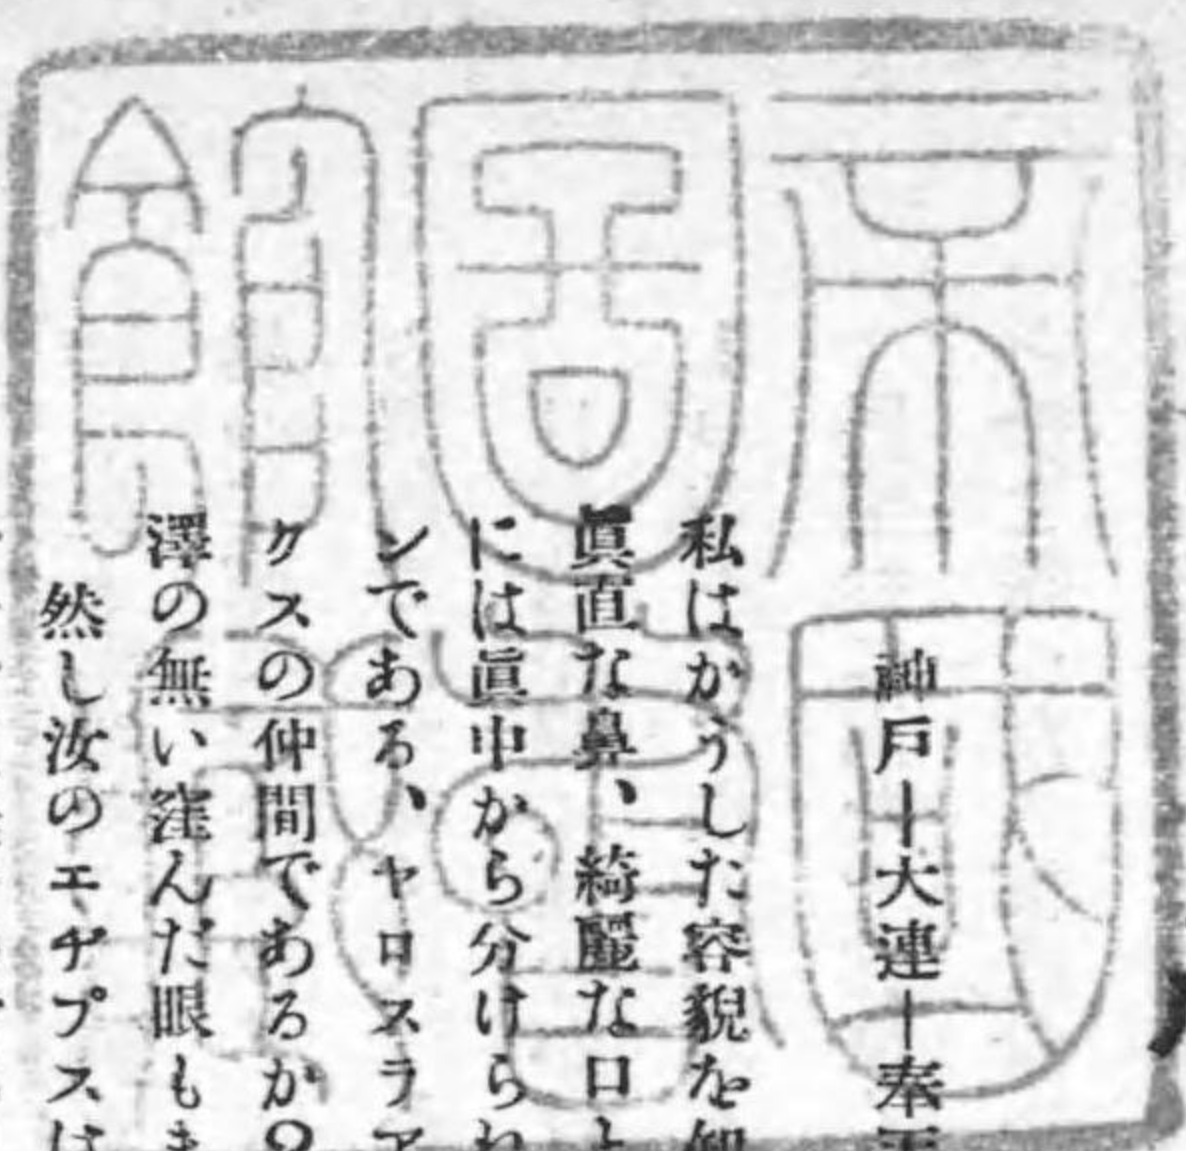 帝國
圖書
館藏
神戸ー大連ー奉
私はかうした容貌を
眞直な鼻、綺麗な口と
には眞中から分けられ
ンである、ヤロスラア
ケスの仲間であるか?
澤の無い窪んだ眼もま
然し汝のエヂプスは